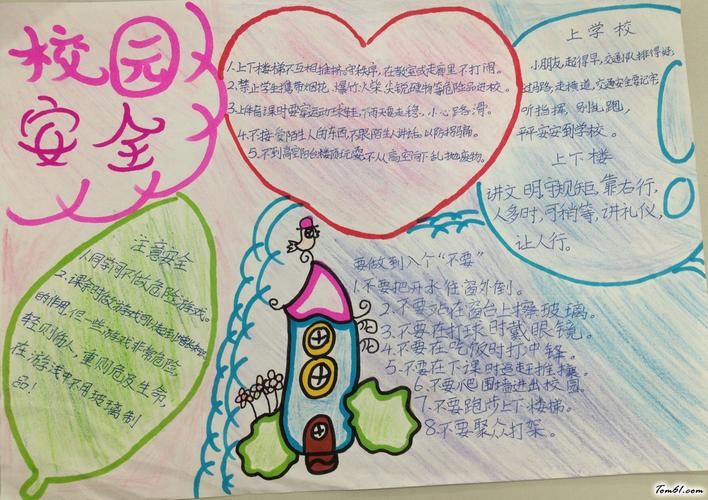 校园
安全
1.上下楼梯不互相推挤。守秩序,在教室或走廊里不打闹。
2.禁止学生携带烟花、爆竹、火柴、尖锐硬物等危险品进校。
3.上体育课时要穿运动球鞋,下雨天要走稳,小心路滑。
4.不接受陌生人的东西,不跟陌生人讲话,以防拐骗。
5.不到高空阳台楼顶玩耍,不从高空向下乱抛废物。
上学校
小朋友,起得早,交通队排得好,
过马路,走横道,交通安全要记牢
听指挥,别乱跑,
平平安安到学校。
上下楼
讲文明,守规矩,靠右行,
人多时,可稍等,讲礼仪,
让人行。
注意安全
1.同学间不做危险游戏。
2.课余时做游戏可
的作用,但一些游戏非常危险
轻则伤人,重则危及生命,
在游戏中不用玻璃制
品!
要做到入个“不要”
1.不要把开水往窗外倒。
2.不要站在窗台上擦玻璃。
3.不要在打球时戴眼镜。
4.不要在吃饭时打冲锋。
5.不要在下课时追赶推攘。
6.不要爬围墙进出校园。
7.不要跑步上下楼梯。
8.不要聚众打架。
Tom61.com